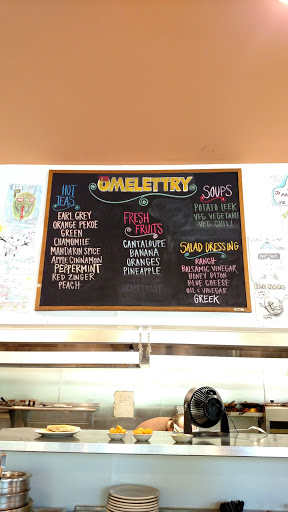 THE OMELETTRY
HOT TEAS
EARL GREY
ORANGE PEKOE
GREEN
CHAMOMILE
MANDARIN SPICE
APPLE CINNAMON
PEPPERMINT
RED ZINGER
PEACH
FRESH FRUITS
CANTALOUPE
BANANA
ORANGES
PINEAPPLE
SOUPS
POTATO LEEK
VEG VEGETABLE
VEG CHILI
SALAD DRESSING
RANCH
BALSAMIC VINEGAR
HONEY DIJON
BLUE CHEESE
OIL & VINEGAR
GREEK